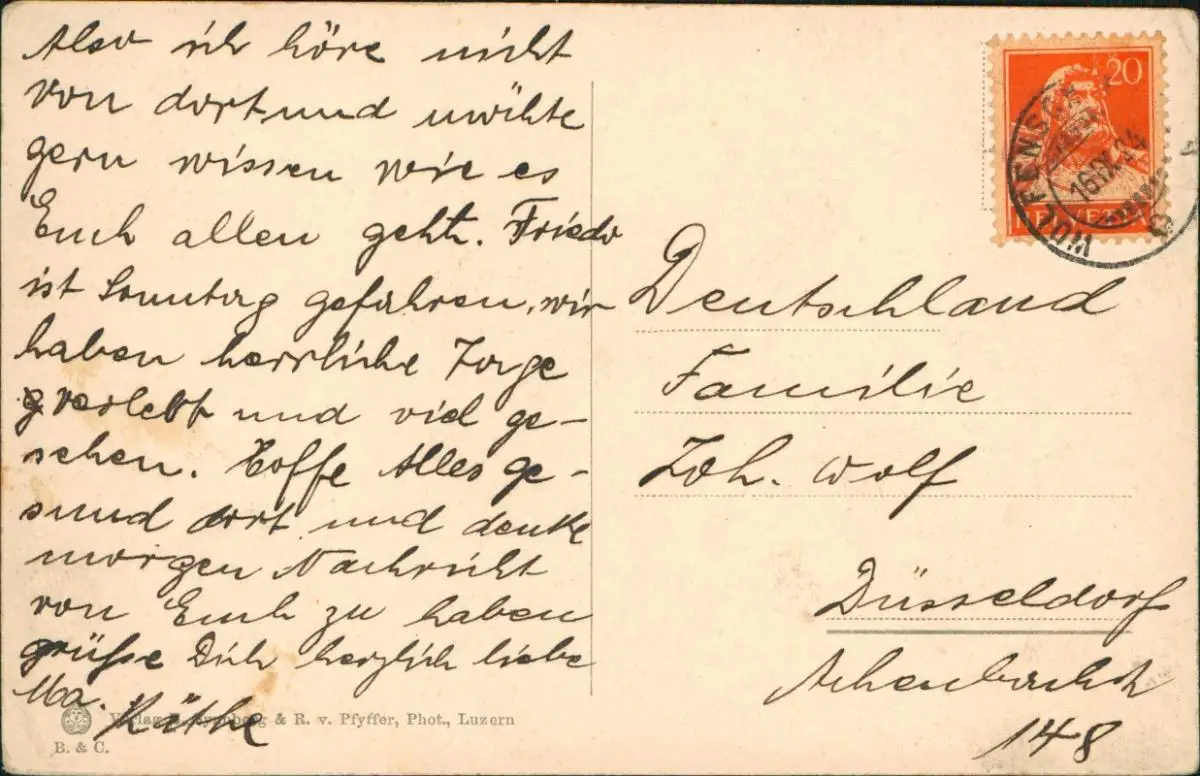 Also ich höre nicht
von dort und möchte
gern wissen wie es
Euch allen geht. Friedo
ist Sonntag gefahren, wir
haben herrliche Tage
verlebt und viel ge-
sehen. Hoffe Alles ge-
sund dort und denke
morgen Nachricht
von Euch zu haben
grüße Dich herzlich liebe
Ma. Käthe
& R. v. Pfyffer, Phot., Luzern
B. & C.
20
HELVETIA
16.IX.24
Deutschland
Familie
Joh. Wolf
Düsseldorf
Achenbachstr
148